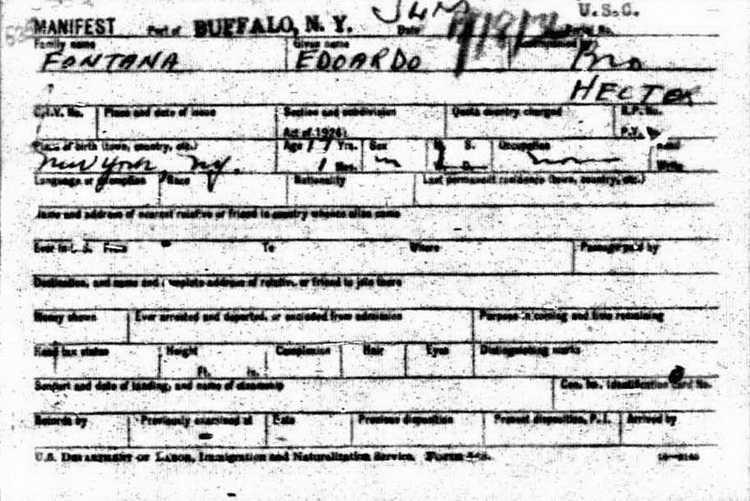 U.S.C.
MANIFEST Port of BUFFALO, N. Y. Date Serial No.
Family name Given name Accompanied
FONTANA EDOARDO Bro
HECTER
C.I.V. No. Place and date of issue Section and subdivision Quota country charged R.P. No.
Act of 1924 P.V. No.
Place of birth (town, country, etc.) Age Yrs. Sex M. S. Occupation Read
New York, N.Y. 1 Mos. m W. D. none Write
Language or exemption Race Nationality Last permanent residence (town, country, etc.)
Name and address of nearest relative or friend in country whence alien came
Ever in U.S. From To Where Passage paid by
Destination, and name and complete address of relative or friend to join there
Money shown Ever arrested and deported, or excluded from admission Purpose in coming and time remaining
Head tax status Height Complexion Hair Eyes Distinguishing marks
Ft. In.
Seaport and date of landing, and name of steamship Con. No. Identification Card No.
Records by Previously examined at Date Previous disposition Present disposition, P.I. Arrived by
U.S. Department of Labor, Immigration and Naturalization Service. Form 548.